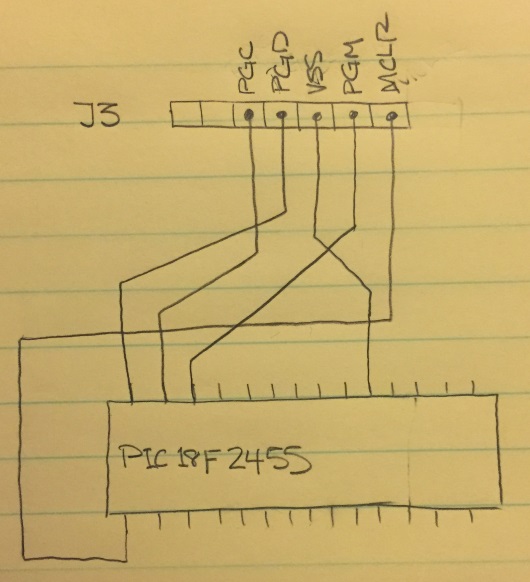 PGC
PGD
VSS
PGM
MCLR
J3
PIC 18F2455